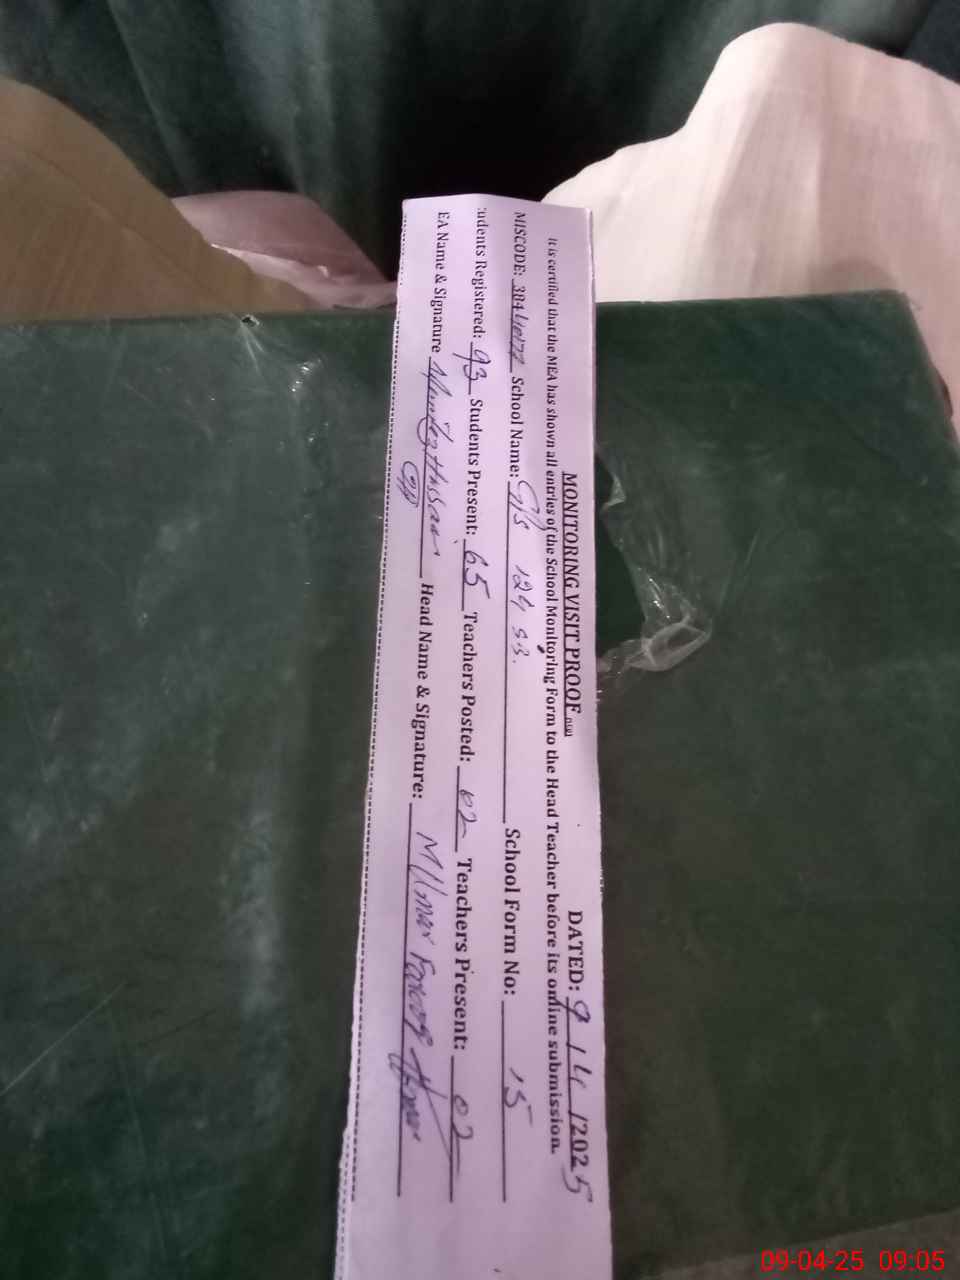 MONITORING VISIT PROOF DATED: 9 / 4 / 2025
It is certified that the MEA has shown all entries of the School Monitoring Form to the Head Teacher before its online submission.
MISCODE: School Name: 124 SB. School Form No: 15
udents Registered: 93 Students Present: 65 Teachers Posted: 02 Teachers Present: 02
EA Name & Signature Hassan Head Name & Signature: M Umar Farooq
09-04-25 09:05